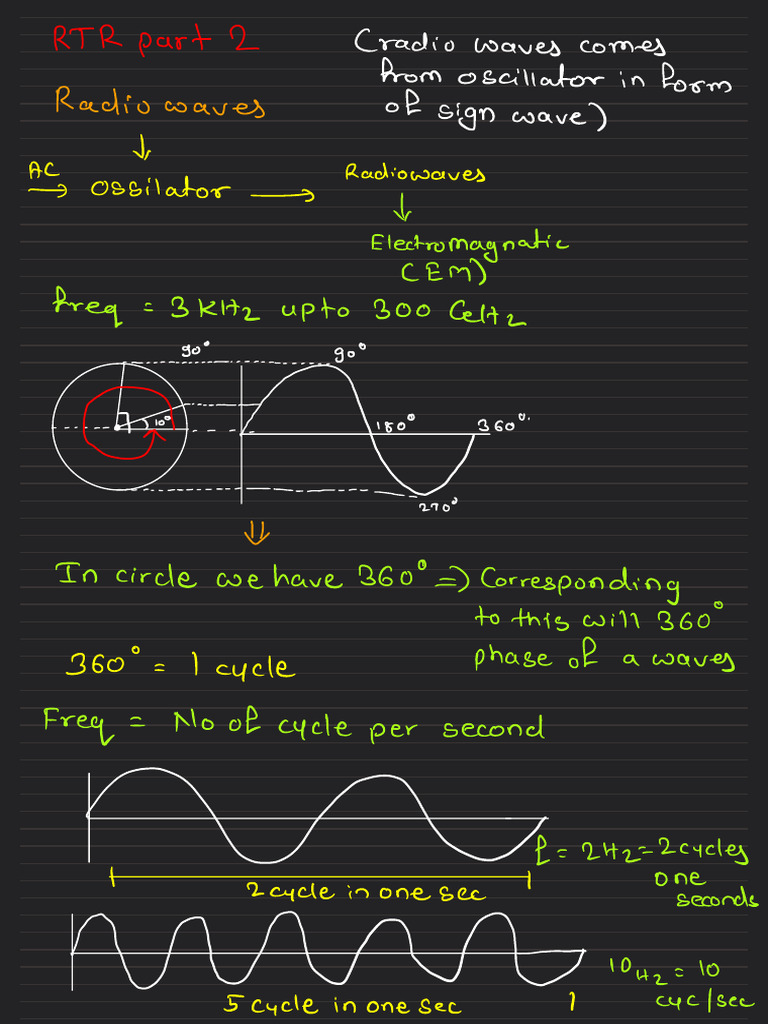 RTR part 2
(radio waves comes
from oscillator in form
of sign wave)
Radio waves
AC
ossilator
Radiowaves
Electromagnatic
(EM)
freq = 3 KHz upto 300 GHz
90°
90°
10°
180°
360°
270°
In circle we have 360° => Corresponding
to this will 360°
phase of a waves
360° = 1 cycle
Freq = No of cycle per second
f = 2Hz = 2 cycles
one
seconds
2 cycle in one sec
10Hz = 10
cyc/sec
5 cycle in one sec
1